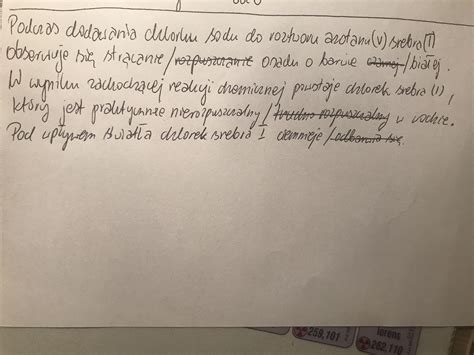 Podczas dodawania chlorku sodu do roztworu azotanu(V) srebra(I)
obserwuje się strącanie/rozpuszczanie osadu o barwie czarnej/białej.
W wyniku zachodzącej reakcji chemicznej powstaje chlorek srebra(I),
który jest praktycznie nierozpuszczalny/trudno rozpuszczalny w wodzie.
Pod wpływem światła chlorek srebra I ciemnieje/odbarwia się.
259,101
lorens
262,110